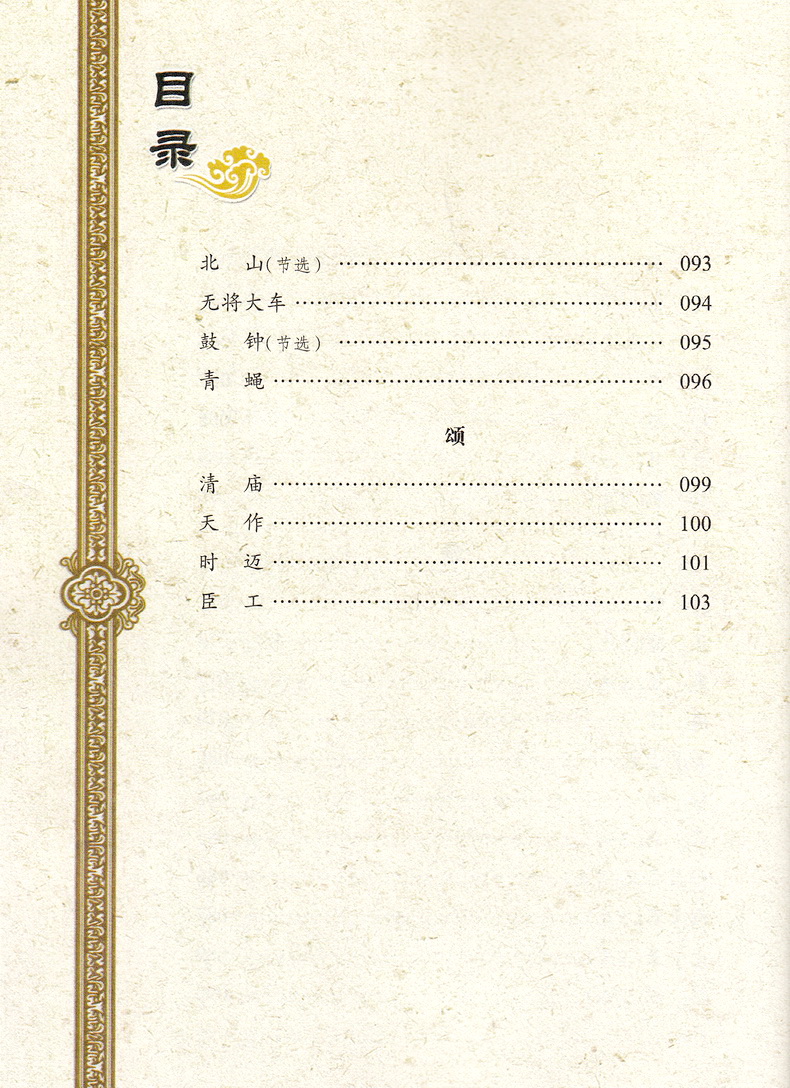 目录
北 山(节选) ………………………………………… 093
无将大车 ………………………………………… 094
鼓 钟(节选) ………………………………………… 095
青 蝇 ………………………………………… 096
颂
清 庙 ………………………………………… 099
天 作 ………………………………………… 100
时 迈 ………………………………………… 101
臣 工 ………………………………………… 103